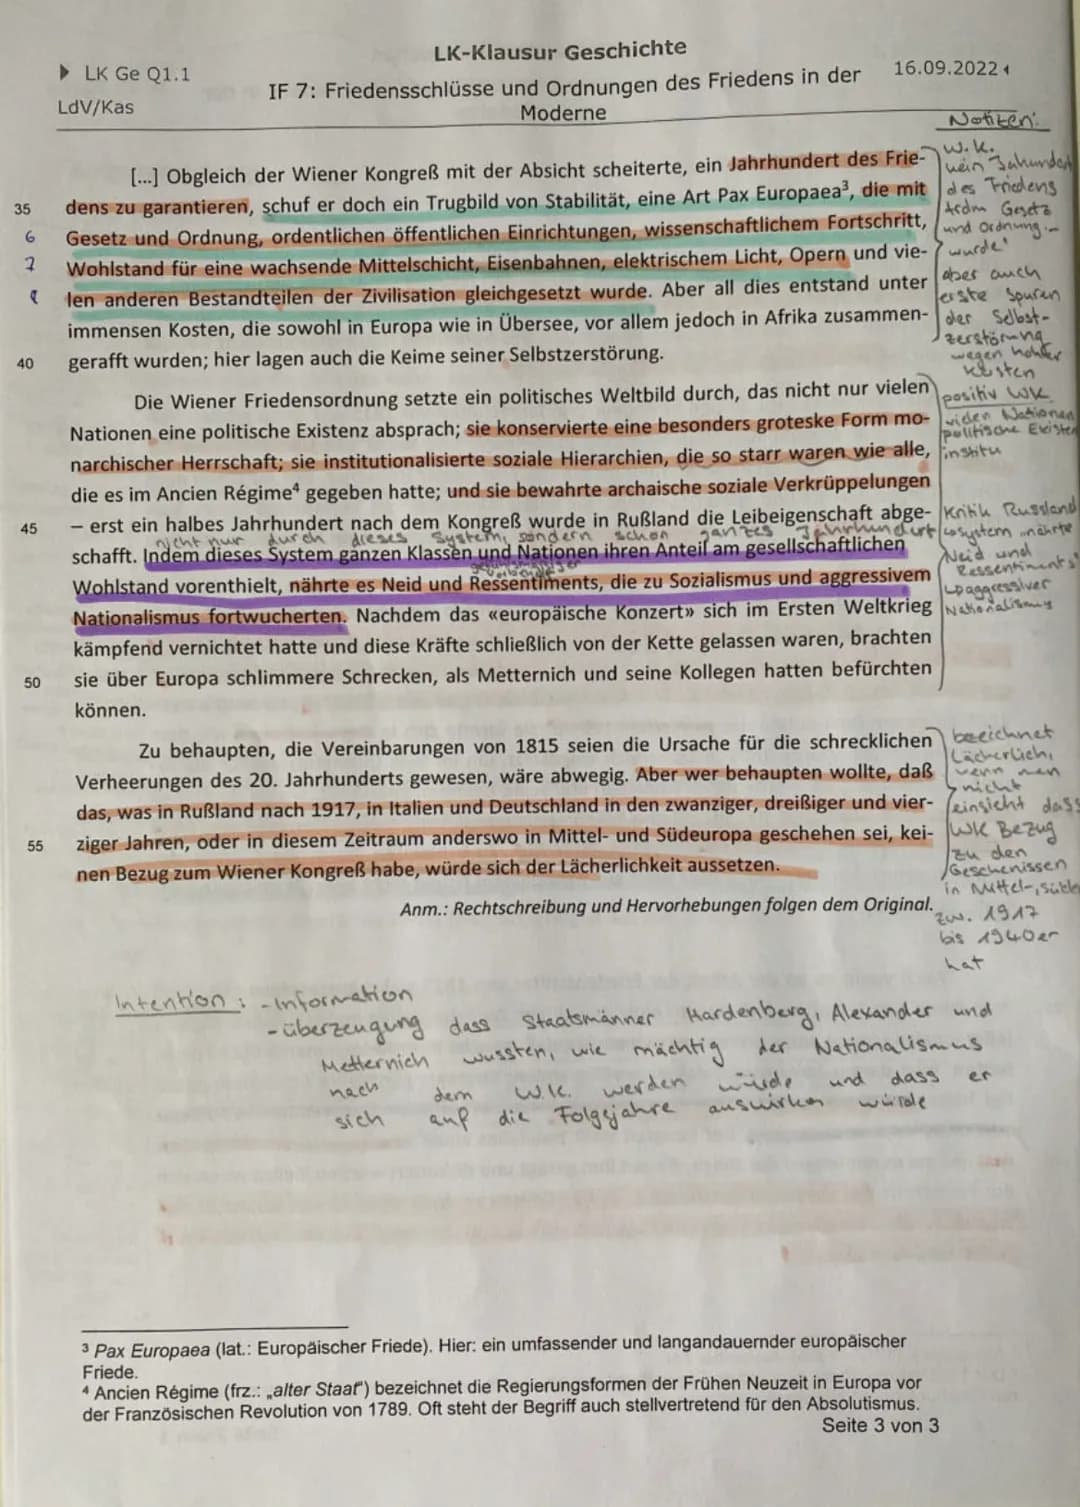 LK-Klausur Geschichte
▶ LK Ge Q1.1
16.09.2022
IF 7: Friedensschlüsse und Ordnungen des Friedens in der
LdV/Kas
Moderne
Notizen:
[...] Obgleich der Wiener Kongreß mit der Absicht scheiterte, ein Jahrhundert des Frie-
35 dens zu garantieren, schuf er doch ein Trugbild von Stabilität, eine Art Pax Europaea³, die mit
6 Gesetz und Ordnung, ordentlichen öffentlichen Einrichtungen, wissenschaftlichem Fortschritt,
7 Wohlstand für eine wachsende Mittelschicht, Eisenbahnen, elektrischem Licht, Opern und vie-
8 len anderen Bestandteilen der Zivilisation gleichgesetzt wurde. Aber all dies entstand unter
immensen Kosten, die sowohl in Europa wie in Übersee, vor allem jedoch in Afrika zusammen-
40 gerafft wurden; hier lagen auch die Keime seiner Selbstzerstörung.
W.K.
kein Jahrhundert
des Friedens
trdm Gesetz
und Ordnung...
wurde!
aber auch
erste Spuren
der Selbst-
zerstörung
wegen hoher
Kosten
Die Wiener Friedensordnung setzte ein politisches Weltbild durch, das nicht nur vielen
Nationen eine politische Existenz absprach; sie konservierte eine besonders groteske Form mo-
narchischer Herrschaft; sie institutionalisierte soziale Hierarchien, die so starr waren wie alle,
die es im Ancien Régime⁴ gegeben hatte; und sie bewahrte archaische soziale Verkrüppelungen
45 – erst ein halbes Jahrhundert nach dem Kongreß wurde in Rußland die Leibeigenschaft abge-
nicht nur durch dieses System, sondern schon ganzes Jahrhundert
schafft. Indem dieses System ganzen Klassen und Nationen ihren Anteil am gesellschaftlichen
Wohlstand vorenthielt, nährte es Neid und Ressentiments, die zu Sozialismus und aggressivem
Nationalismus fortwucherten. Nachdem das «europäische Konzert» sich im Ersten Weltkrieg
kämpfend vernichtet hatte und diese Kräfte schließlich von der Kette gelassen waren, brachten
50 sie über Europa schlimmere Schrecken, als Metternich und seine Kollegen hatten befürchten
können.
positiv WK
vielen Nationen
politische Existen
institu
Kritik Russland
system nährte
Neid und
Ressentiments
aggressiver
Nationalismus
Zu behaupten, die Vereinbarungen von 1815 seien die Ursache für die schrecklichen
Verheerungen des 20. Jahrhunderts gewesen, wäre abwegig. Aber wer behaupten wollte, daß
das, was in Rußland nach 1917, in Italien und Deutschland in den zwanziger, dreißiger und vier-
55 ziger Jahren, oder in diesem Zeitraum anderswo in Mittel- und Südeuropa geschehen sei, kei-
nen Bezug zum Wiener Kongreß habe, würde sich der Lächerlichkeit aussetzen.
bezeichnet
Lächerlich,
wenn man
nicht
einsieht dass
WK Bezug
zu den
Geschenissen
in Mittel-,
zw. 1917
bis 1940er
hat
Anm.: Rechtschreibung und Hervorhebungen folgen dem Original.
Intention: - Information
- überzeugung dass Staatsmänner Hardenberg, Alexander und
Metternich wussten, wie mächtig der Nationalismus
nach dem W.K. werden würde und dass er
sich auf die Folgejahre auswirken würde
³ Pax Europaea (lat.: Europäischer Friede). Hier: ein umfassender und langandauernder europäischer
Friede.
⁴ Ancien Régime (frz.: „alter Staat“) bezeichnet die Regierungsformen der Frühen Neuzeit in Europa vor
der Französischen Revolution von 1789. Oft steht der Begriff auch stellvertretend für den Absolutismus.
Seite 3 von 3